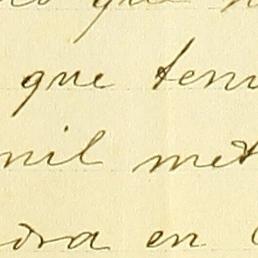 que
que ten
mil met
dra en